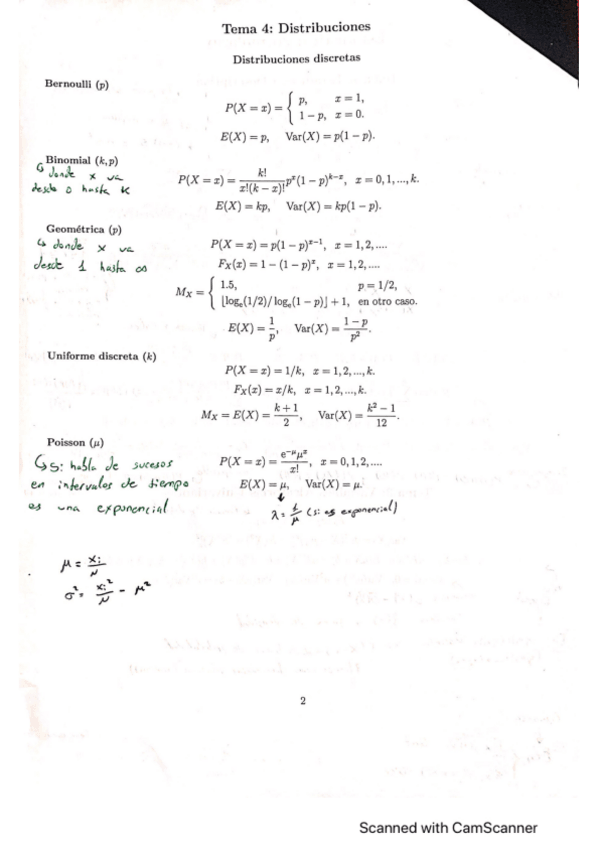 Tema 4: Distribuciones
Distribuciones discretas
Bernoulli (p)
P(X = x) = { p, x = 1,
1 − p, x = 0.
E(X) = p, Var(X) = p(1 − p).
Binomial (k, p)
↳ donde x va
desde 0 hasta K
P(X = x) = k!/(x!(k − x)!) p^x(1 − p)^{k−x}, x = 0, 1, ..., k.
E(X) = kp, Var(X) = kp(1 − p).
Geométrica (p)
↳ donde x va
desde 1 hasta ∞
P(X = x) = p(1 − p)^{x−1}, x = 1, 2, ....
F_X(x) = 1 − (1 − p)^x, x = 1, 2, ....
M_X = { 1.5, p = 1/2,
⌊log_e(1/2)/log_e(1 − p)⌋ + 1, en otro caso.
E(X) = 1/p, Var(X) = (1 − p)/p².
Uniforme discreta (k)
P(X = x) = 1/k, x = 1, 2, ..., k.
F_X(x) = x/k, x = 1, 2, ..., k.
M_X = E(X) = (k + 1)/2, Var(X) = (k² − 1)/12.
Poisson (μ)
↳ Si habla de sucesos
en intervalos de tiempo
es una exponencial
P(X = x) = e^{−μ}μ^x/x!, x = 0, 1, 2, ....
E(X) = μ, Var(X) = μ.
↓
λ = 1/μ (si es exponencial)
μ = xi/N
σ² = xi²/N − μ²
2
Scanned with CamScanner